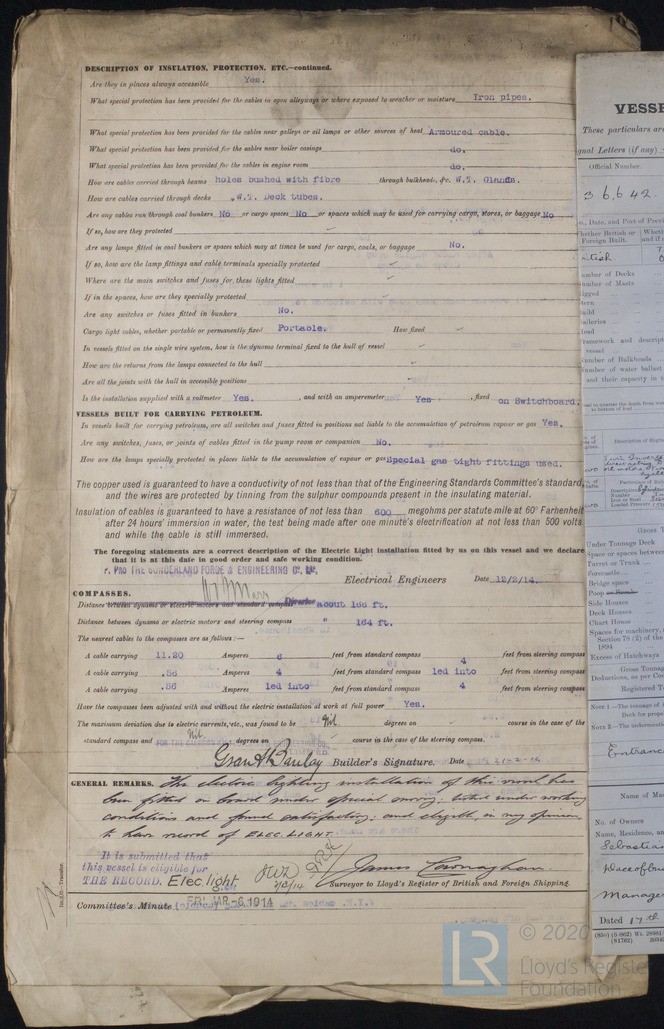 DESCRIPTION OF INSULATION, PROTECTION, ETC.—continued.
Are they in places always accessible Yes.
What special protection has been provided for the cables in open alleyways or where exposed to weather or moisture Iron pipes.
What special protection has been provided for the cables near galleys or oil lamps or other sources of heat Armoured cable.
What special protection has been provided for the cables near boiler casings do.
What special protection has been provided for the cables in engine room do.
How are cables carried through beams holes bushed with fibre through bulkheads, &c. W.T. Glands.
How are cables carried through decks W.T. Deck tubes.
Are any cables run through coal bunkers No or cargo spaces No or spaces which may be used for carrying cargo, stores, or baggage No
If so, how are they protected
Are any lamps fitted in coal bunkers or spaces which may at times be used for cargo, coals, or baggage No.
If so, how are the lamp fittings and cable terminals specially protected
Where are the main switches and fuses for these lights fitted
If in the spaces, how are they specially protected
Are any switches or fuses fitted in bunkers No.
Cargo light cables, whether portable or permanently fixed Portable. How fixed
In vessels fitted on the single wire system, how is the dynamo terminal fixed to the hull of vessel
How are the returns from the lamps connected to the hull
Are all the joints with the hull in accessible positions
Is the installation supplied with a voltmeter Yes. , and with an amperemeter Yes , fixed on Switchboard.
VESSELS BUILT FOR CARRYING PETROLEUM.
In vessels built for carrying petroleum, are all switches and fuses fitted in positions not liable to the accumulation of petroleum vapour or gas Yes.
Are any switches, fuses, or joints of cables fitted in the pump room or companion No.
How are the lamps specially protected in places liable to the accumulation of vapour or gas Special gas tight fittings used.
The copper used is guaranteed to have a conductivity of not less than that of the Engineering Standards Committee's standard,
and the wires are protected by tinning from the sulphur compounds present in the insulating material.
Insulation of cables is guaranteed to have a resistance of not less than 600 megohms per statute mile at 60° Farhenheit
after 24 hours' immersion in water, the test being made after one minute's electrification at not less than 500 volts
and while the cable is still immersed.
The foregoing statements are a correct description of the Electric Light installation fitted by us on this vessel and we declare
that it is at this date in good order and safe working condition.
PRO THE SUNDERLAND FORGE & ENGINEERING Co. Ld.
Director
Electrical Engineers Date 12/2/14.
COMPASSES.
Distance between dynamo or electric motors and standard compass about 166 ft.
Distance between dynamo or electric motors and steering compass " 164 ft.
The nearest cables to the compasses are as follows:—
A cable carrying 11.20 Amperes 6 feet from standard compass 4 feet from steering compass
A cable carrying .56 Amperes 4 feet from standard compass led into feet from steering compass
A cable carrying .56 Amperes led into feet from standard compass 4 feet from steering compass
Have the compasses been adjusted with and without the electric installation at work at full power Yes.
The maximum deviation due to electric currents, etc., was found to be Nil. degrees on course in the case of the
standard compass and Nil. degrees on course in the case of the steering compass.
Grant Barclay Builder's Signature. Date
GENERAL REMARKS. The electric lighting installation of this vessel has
been fitted on board under special survey, tested under working
conditions and found satisfactory, and eligible in my opinion
to have record of ELEC. LIGHT.
It is submitted that
this vessel is eligible for
THE RECORD. Elec. light
James Carnaghan
Surveyor to Lloyd's Register of British and Foreign Shipping.
Committee's Minute FRI. MAR -6.1914
Transfer.
VESSE
These particulars are
gnal Letters (if any)
Official Number.
36,642
Foreign Built.
umber of Decks
umber of Masts
igged
tern
uild
alleries
ead
ramework and descript
vessel
umber of Bulkheads
umber of water ballast
and their capacity in
Under Tonnage Deck
Space or spaces between
Turret or Trunk
Forecastle
Bridge space
Poop or Break
Side Houses
Deck Houses
Chart House
Spaces for machinery,
Section 78 (2) of the
1894
Excess of Hatchways
Gross Tonnage
Deductions, as per Co
Registered T
NOTE 1.—The tonnage of
Deck for proper
NOTE 2.—The undermentio
Entrance
Name of Ma
No. of Owners
Name, Residence, an
Sebastian
Manager
Dated 17th
© 2020
LR
Lloyd's Register
Foundation